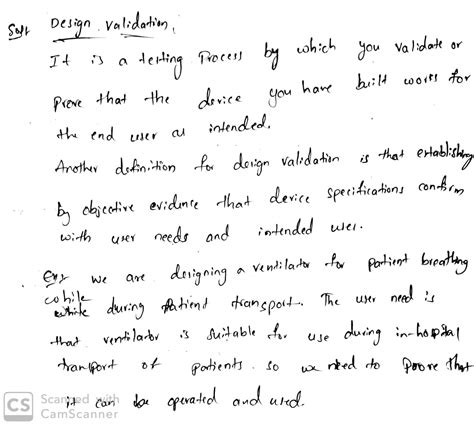 Soln Design validation,
It is a testing Process by which you validate or
prove that the device you have built works for
the end user as intended.
Another definition for design validation is that establishing
by objective evidence that device specifications conform
with user needs and intended uses.
Ex:- we are designing a ventilator for patient breathing
while during patient transport. The user need is
that ventilator is suitable for use during in-hospital
transport of patients. so we need to proove that
it can be operated and used.
CS Scanned with
CamScanner